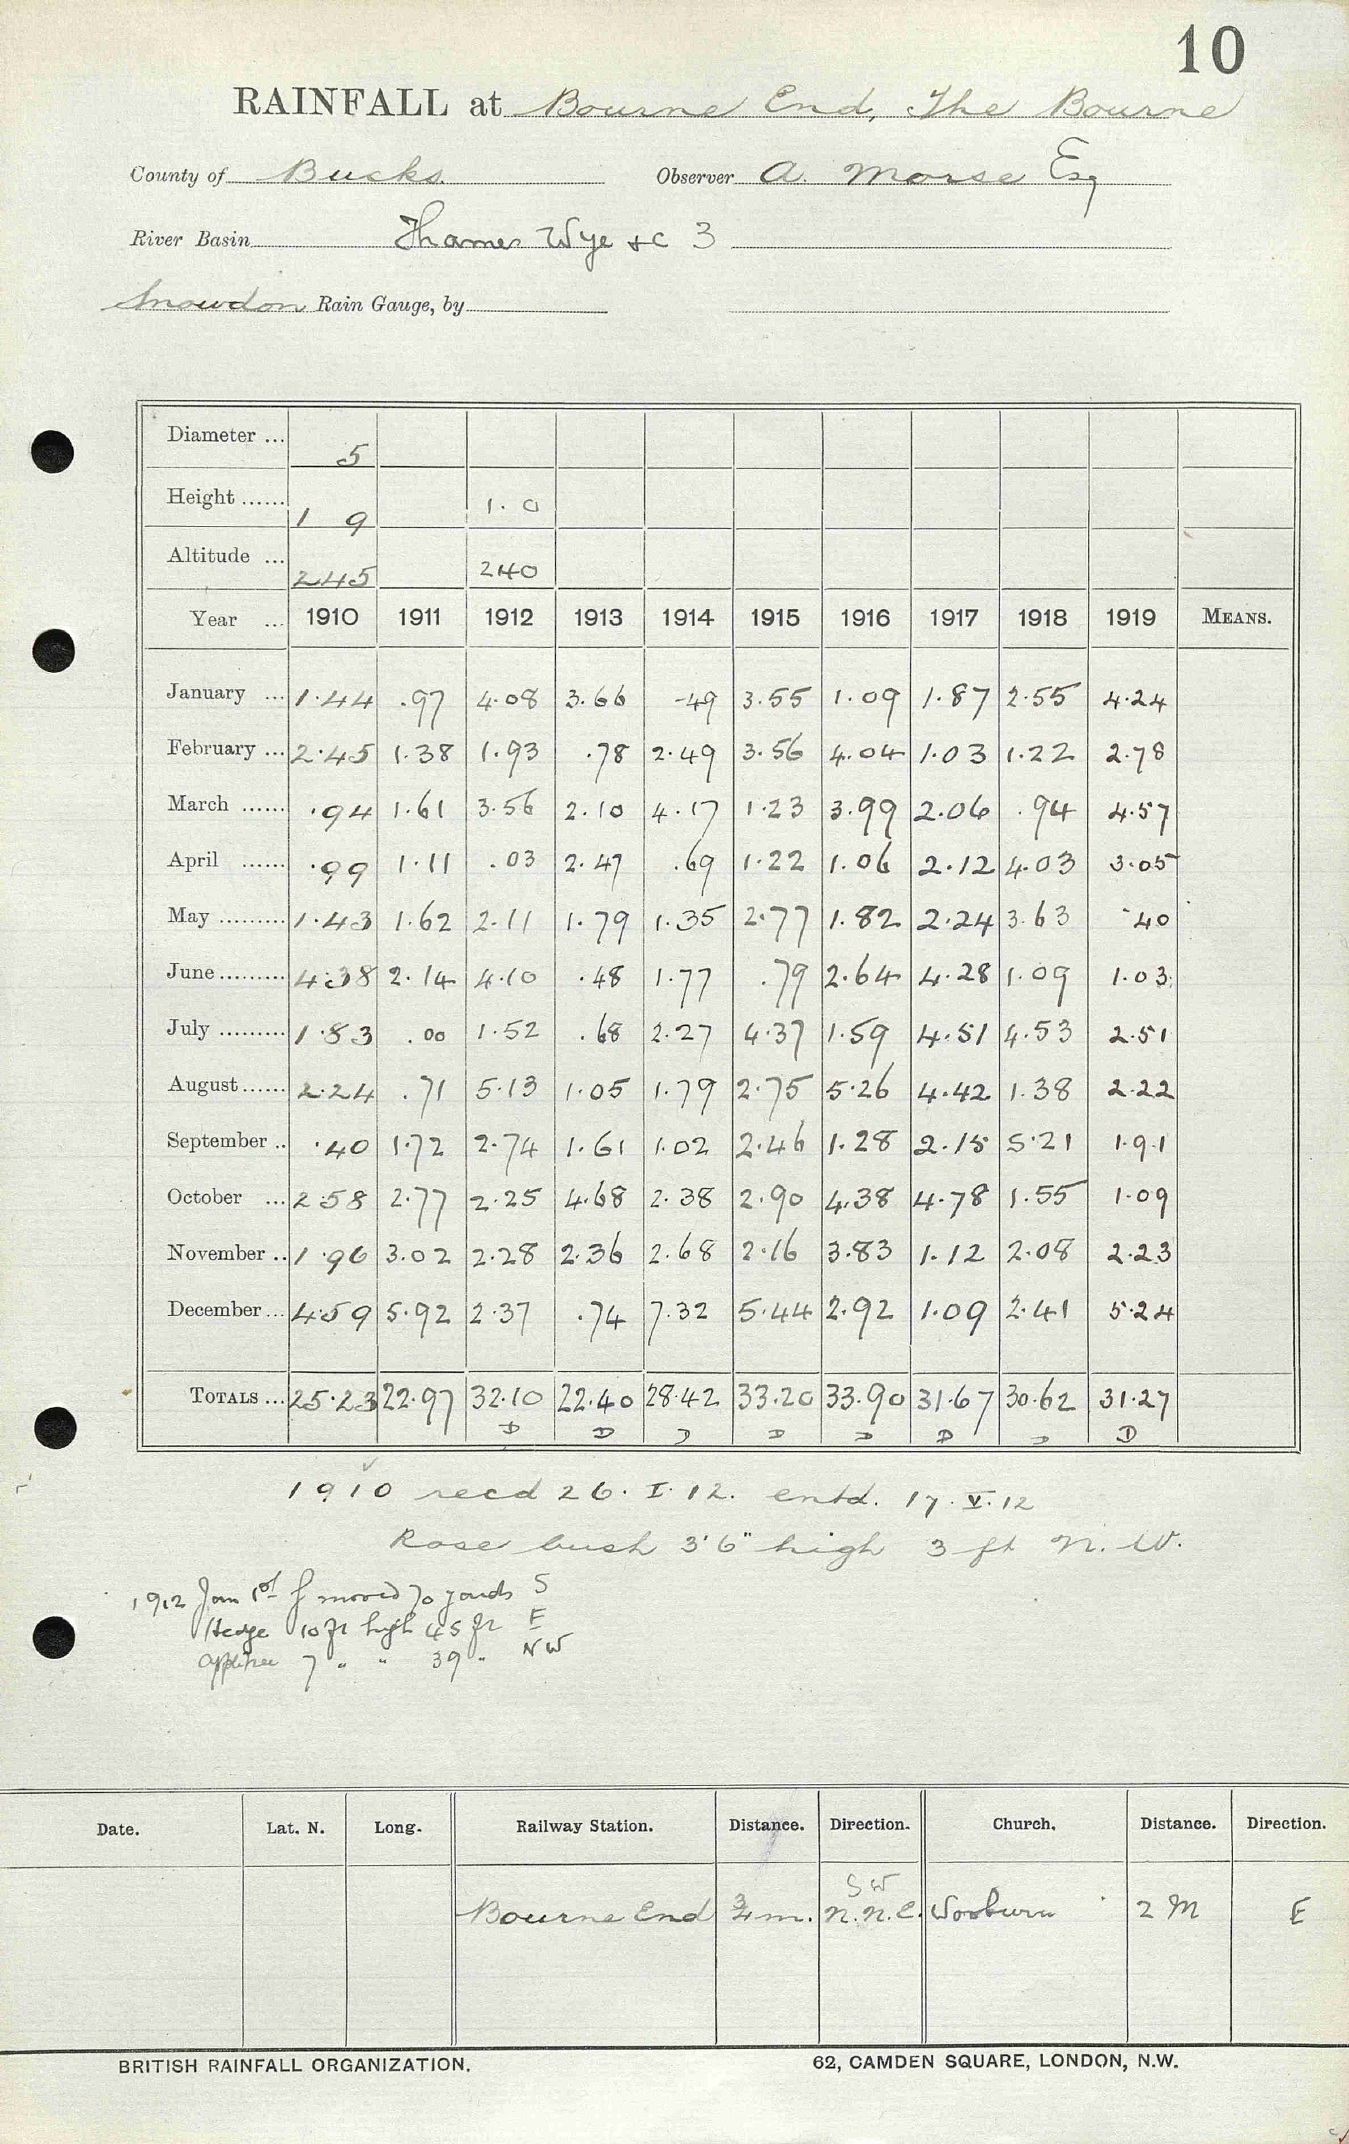 10
RAINFALL at Bourne End, The Bourne
County of Bucks. Observer A. Morse Esq
River Basin Thames Wye &c 3
Snowdon Rain Gauge, by
Diameter ... 5
Height ...... 1 9 1.0
Altitude ... 245 240
Year ... 1910 1911 1912 1913 1914 1915 1916 1917 1918 1919 MEANS.
January ... 1.44 .97 4.08 3.66 .49 3.55 1.09 1.87 2.55 4.24
February ... 2.45 1.38 1.93 .78 2.49 3.56 4.04 1.03 1.22 2.78
March ...... .94 1.61 3.56 2.10 4.17 1.23 3.99 2.06 .94 4.57
April ...... .99 1.11 .03 2.47 .69 1.22 1.06 2.12 4.03 3.05
May ......... 1.43 1.62 2.11 1.79 1.35 2.77 1.82 2.24 3.63 .40
June ......... 4.38 2.14 4.10 .48 1.77 .79 2.64 4.28 1.09 1.03
July ......... 1.83 .00 1.52 .68 2.27 4.37 1.59 4.51 4.53 2.51
August ...... 2.24 .71 5.13 1.05 1.79 2.75 5.26 4.42 1.38 2.22
September .. .40 1.72 2.74 1.61 1.02 2.46 1.28 2.15 5.21 1.91
October ... 2.58 2.77 2.25 4.68 2.38 2.90 4.38 4.78 1.55 1.09
November .. 1.96 3.02 2.28 2.36 2.68 2.16 3.83 1.12 2.08 2.23
December ... 4.59 5.92 2.37 .74 7.32 5.44 2.92 1.09 2.41 5.24
TOTALS ... 25.23 22.97 32.10 22.40 28.42 33.20 33.90 31.67 30.62 31.27
D D D D D D D D
1910 recd 26. I. 12. entd. 17. V. 12
Rose bush 3'6" high 3 ft N. W.
1912 Jan 1st g moved 70 yards S
Hedge 10 ft high 45 ft E
Appletree 7 " " 39 " NW
Date. Lat. N. Long. Railway Station. Distance. Direction. Church. Distance. Direction.
SW
Bourne End 3/4 m. N.N.E. Wooburn 2 M E
BRITISH RAINFALL ORGANIZATION. 62, CAMDEN SQUARE, LONDON, N.W.